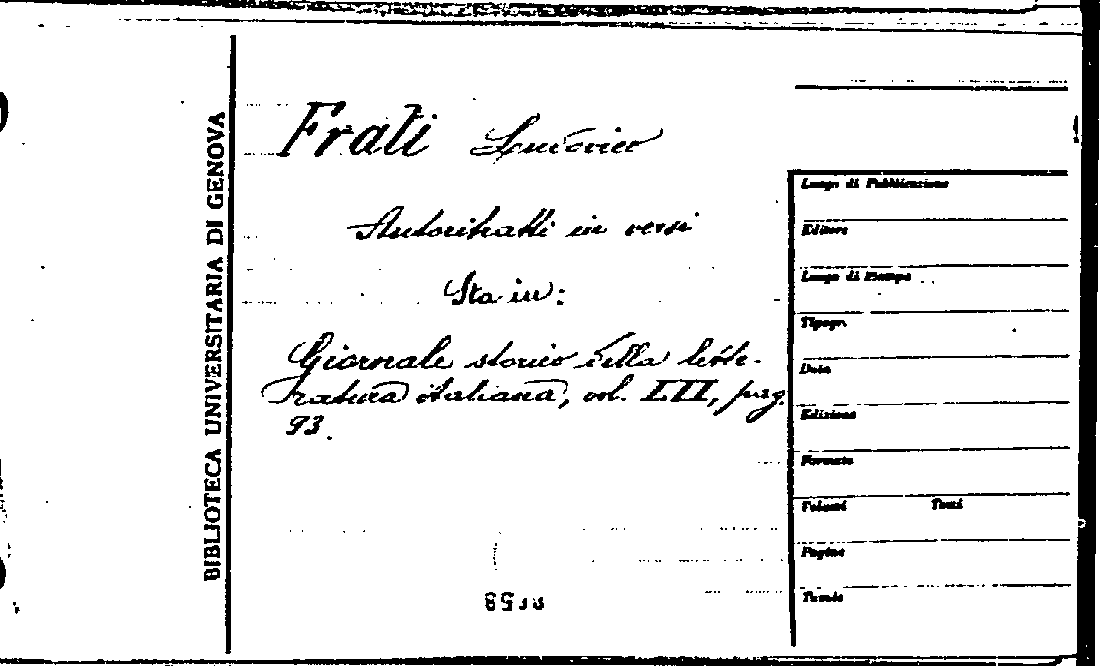 BIBLIOTECA UNIVERSITARIA DI GENOVA
Frati Lodovico
Autoritratti in versi
Sta in:
Giornale storico della lette-
ratura italiana, vol. LII, pag.
93.
Luogo di Pubblicazione
Editore
Luogo di Stampa
Tipogr.
Data
Edizione
Formato
Volumi Tomi
Pagine
Tavole